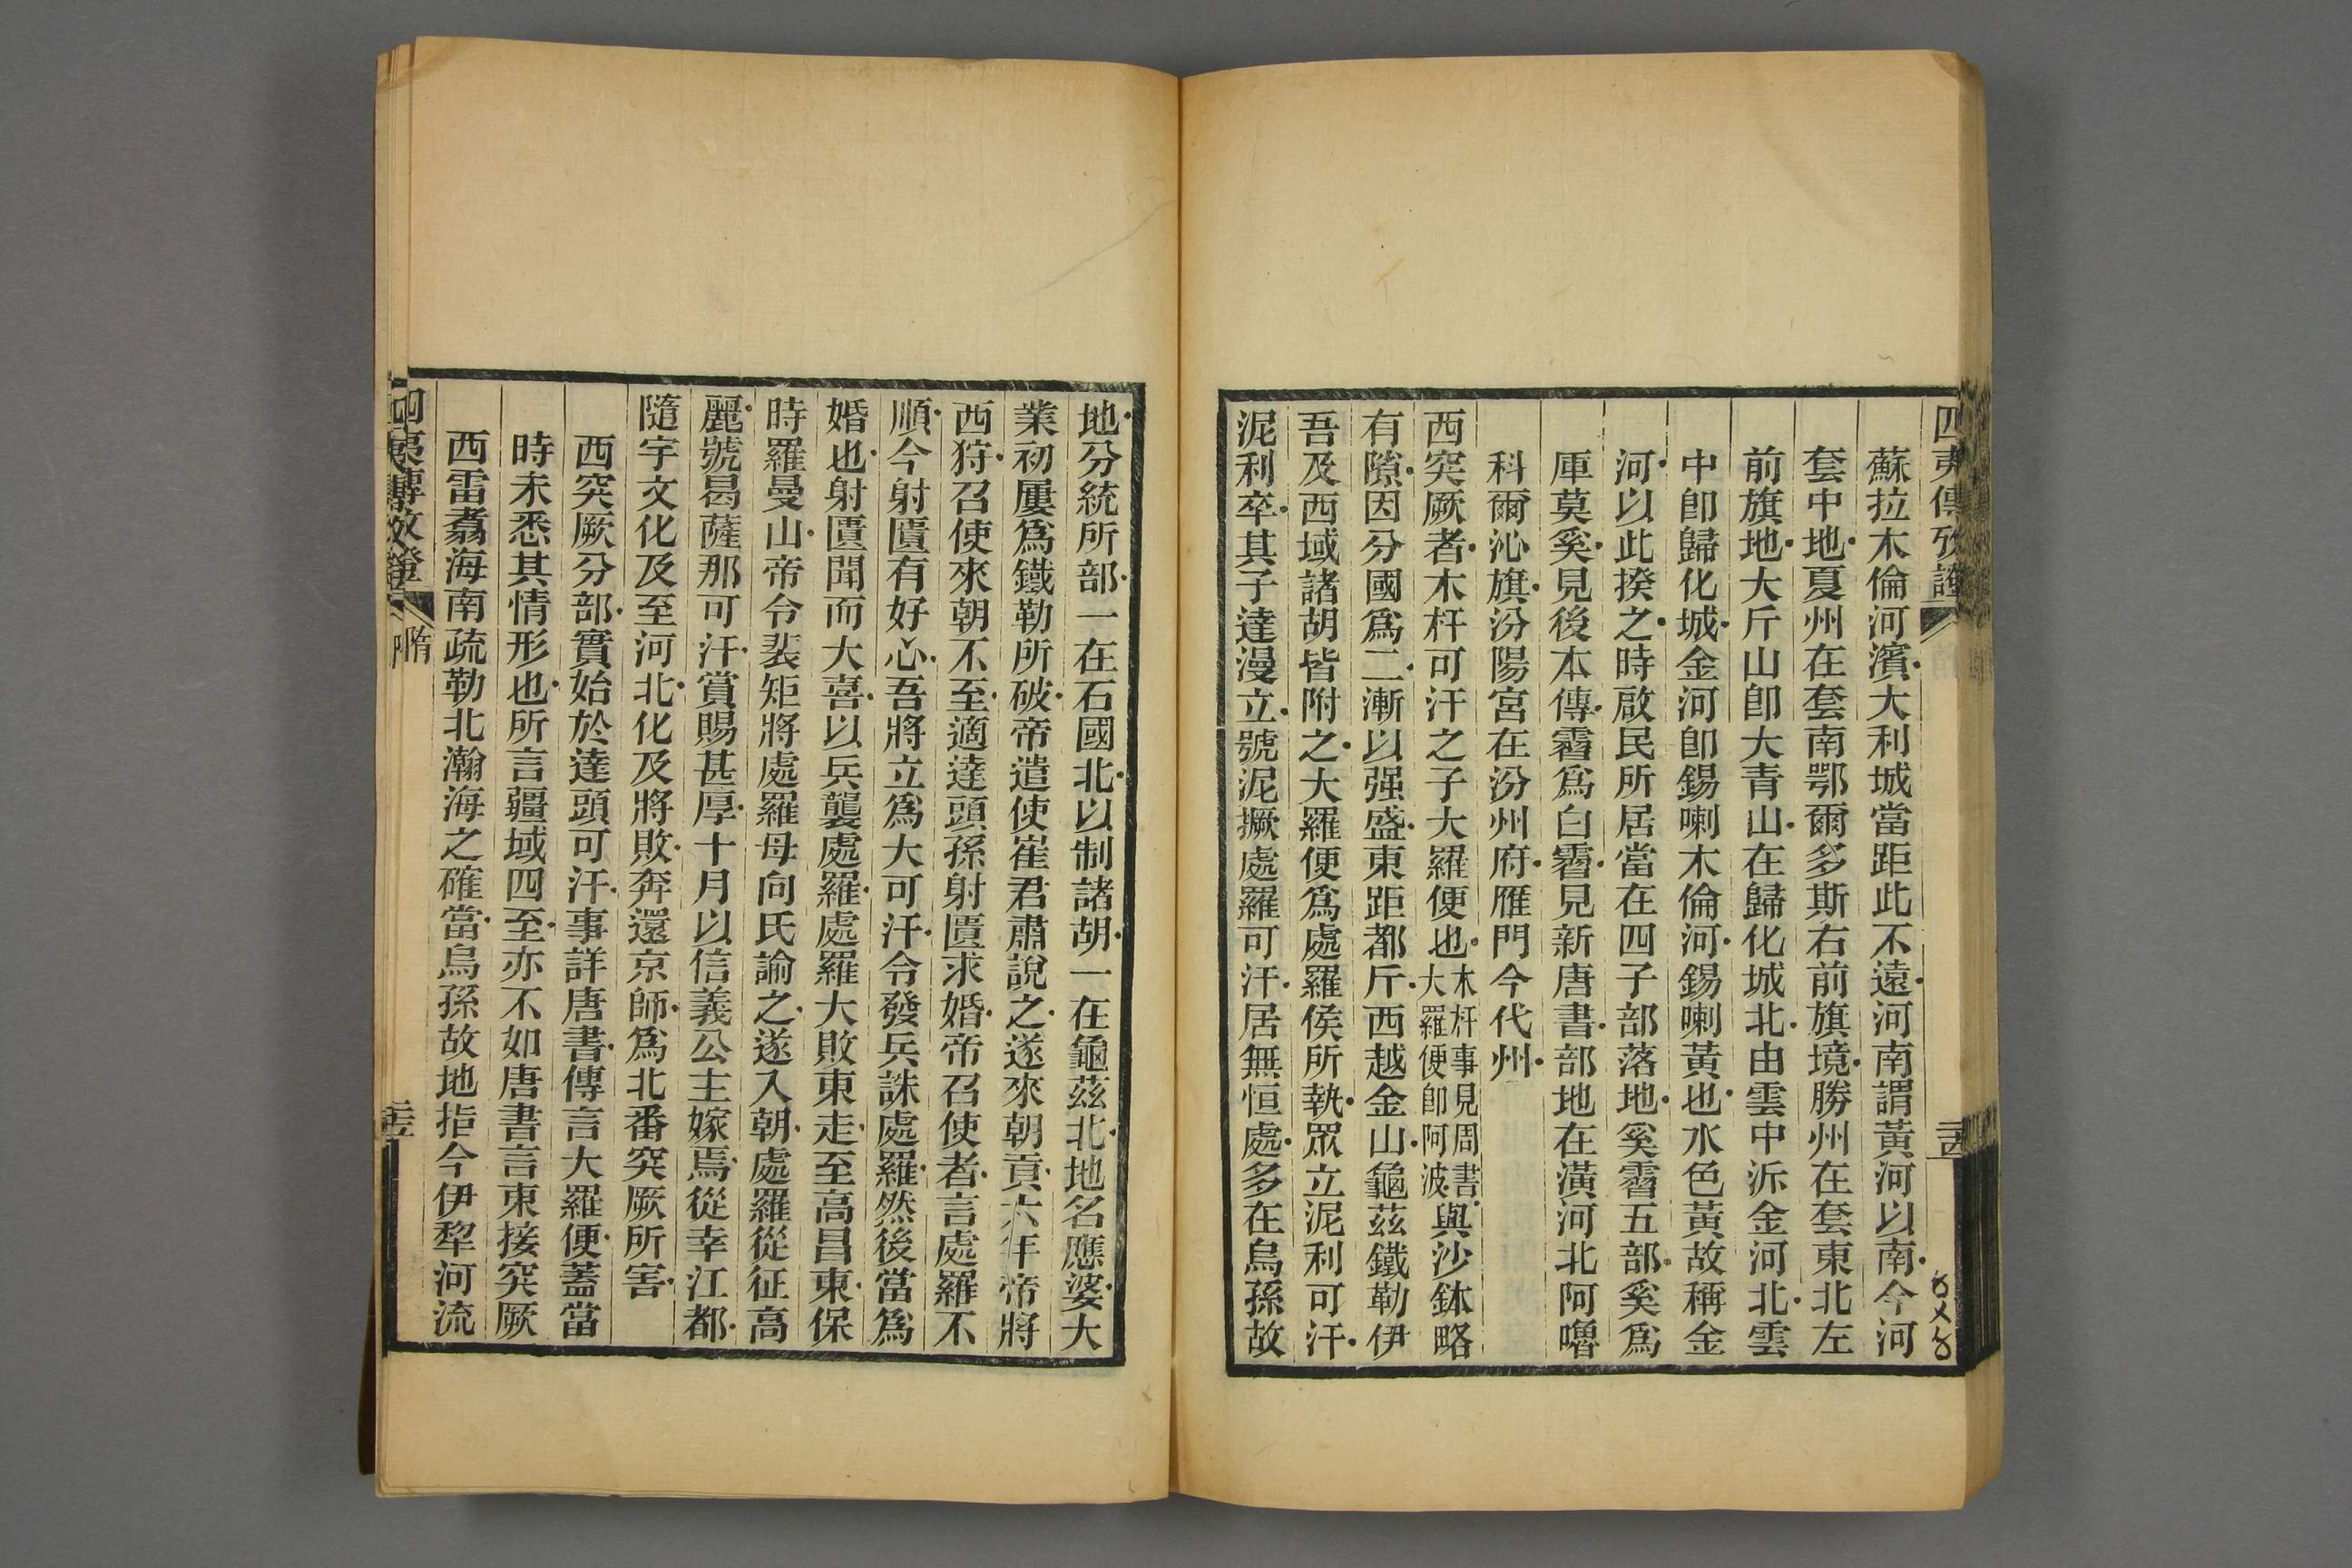 四夷傳攷證
蘇拉木倫河濱大利城當距此不遠河南謂黃河以南今河
套中地夏州在套南鄂爾多斯右前旗境勝州在套東北左
前旗地大斤山卽大青山在歸化城北由雲中泝金河北雲
中卽歸化城金河卽錫喇木倫河錫喇黃也水色黃故稱金
河以此揆之時啟民所居當在四子部落地奚霫五部奚爲
庫莫奚見後本傳霫爲白霫見新唐書部地在潢河北阿嚕
科爾沁旗汾陽宮在汾州府雁門今代州
西突厥者木杆可汗之子大羅便也木杆事見周書大羅便卽阿波與沙鉢略
有隙因分國爲二漸以强盛東距都斤西越金山龜茲鐵勒伊
吾及西域諸胡皆附之大羅便爲處羅侯所執眾立泥利可汗
泥利卒其子達漫立號泥撅處羅可汗居無恒處多在烏孫故
地分統所部一在石國北以制諸胡一在龜茲北地名應婆大
業初屢爲鐵勒所破帝遣使崔君肅說之遂來朝貢六年帝將
西狩召使來朝不至適達頭孫射匱求婚帝召使者言處羅不
順今射匱有好心吾將立爲大可汗令發兵誅處羅然後當爲
婚也射匱聞而大喜以兵襲處羅處羅大敗東走至高昌東保
時羅曼山帝令裴矩將處羅母向氏諭之遂入朝處羅從征高
麗號曷薩那可汗賞賜甚厚十月以信義公主嫁焉從幸江都
隨宇文化及至河北化及將敗奔還京師爲北番突厥所害
西突厥分部實始於達頭可汗事詳唐書傳言大羅便蓋當
時未悉其情形也所言疆域四至亦不如唐書言東接突厥
西雷翥海南疏勒北瀚海之確當烏孫故地指今伊犂河流
四夷傳攷證
隋